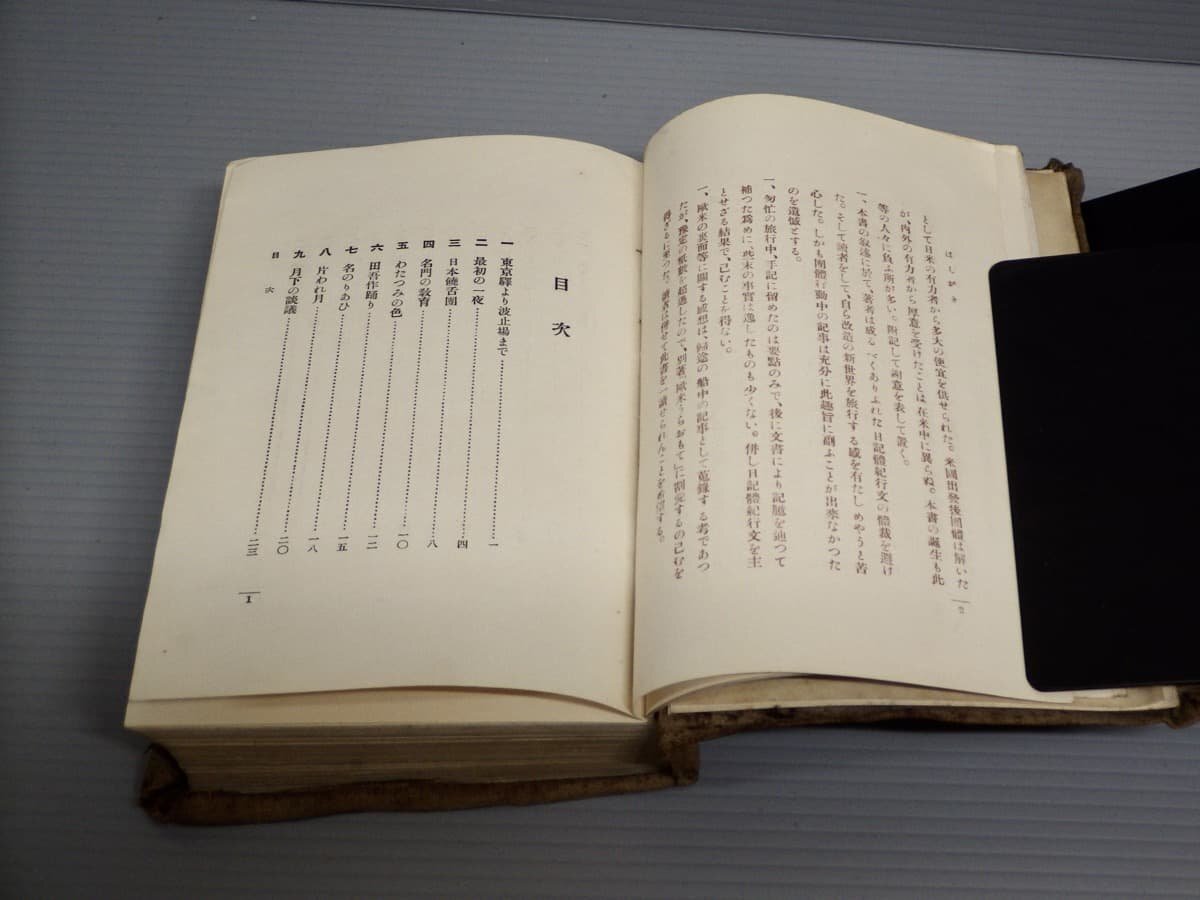 はしがき
として日米の有力者から多大の便宜を供せられた。米國出發後團體は解いた
が、内外の有力者から厚意を受けたことは在米中に異らぬ。本書の誕生も此
等の人々に負ふ所が多い。附記して謝意を表して置く。
一、本書の敍述に於て、著者は成るべくありふれた日記體紀行文の體裁を避け
た。そして讀者をして、自ら改造の新世界を旅行する感を有たしめやうと苦
心した。しかも團體行動中の記事は充分に此趣旨に副ふことが出來なかつた
のを遺憾とする。
一、匆忙の旅行中、手記に留めたのは要點のみで、後に文書により記臆を辿つて
補つた爲めに、些末の事實は逸したものも少くない。併し日記體紀行文を主
とせざる結果で、已むことを得ない。
一、歐米の裏面等に關する感想は、歸途の船中の記事として蒐錄する考であつ
たが、豫定の紙數を超過したので、別著『歐米うらおもて』に割愛するの已むを
得ざるに至つた。讀者は併せて此書を一讀せられんことを希望する。
2
目次
一 東京驛より波止場まで 一
二 最初の一夜 四
三 日本饒舌團 八
四 名門の敎育 一〇
五 わたつみの色 一二
六 田吾作踊り 一五
七 名のりあひ 一八
八 片われ月 二〇
九 月下の談議 二三
目次
1